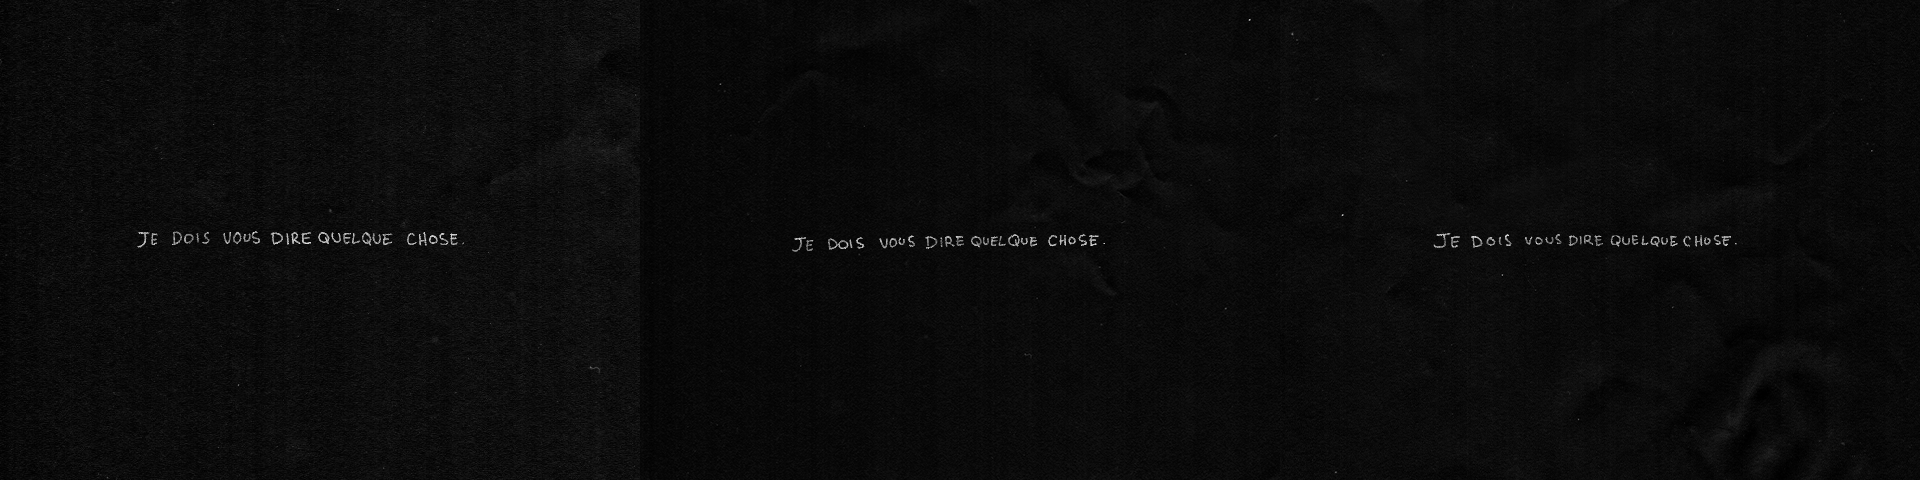 JE DOIS VOUS DIRE QUELQUE CHOSE.
JE DOIS VOUS DIRE QUELQUE CHOSE.
JE DOIS VOUS DIRE QUELQUE CHOSE.